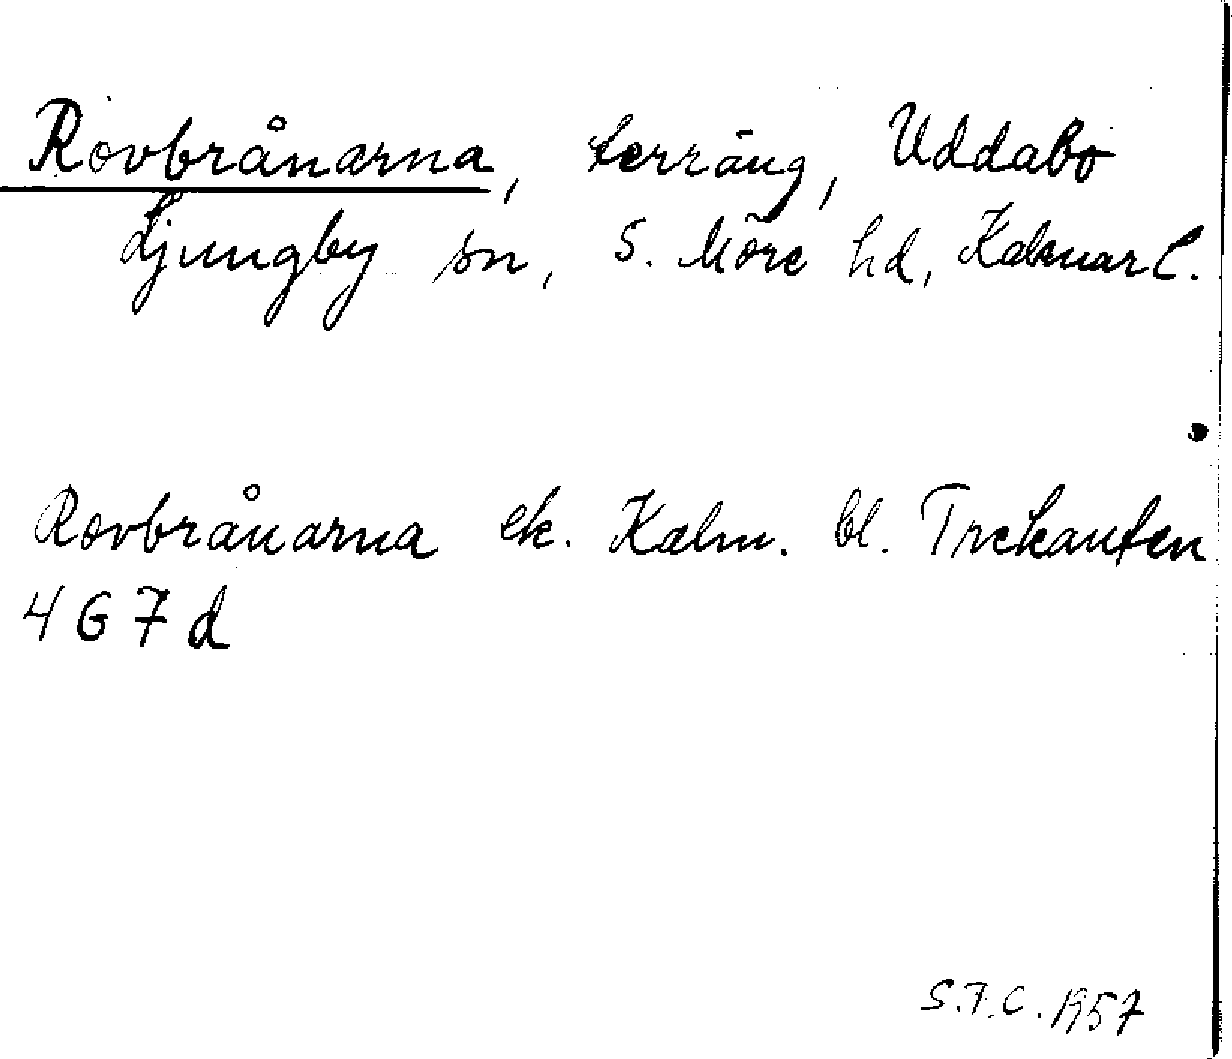 Rovbrånarna, terräng, Uddabo
Ljungby sn, S. Möre hd, Kalmar l.
Rovbrånarna ek. Kalm. bl. Trekanten
4 G 7 d
S.F.C. 1957